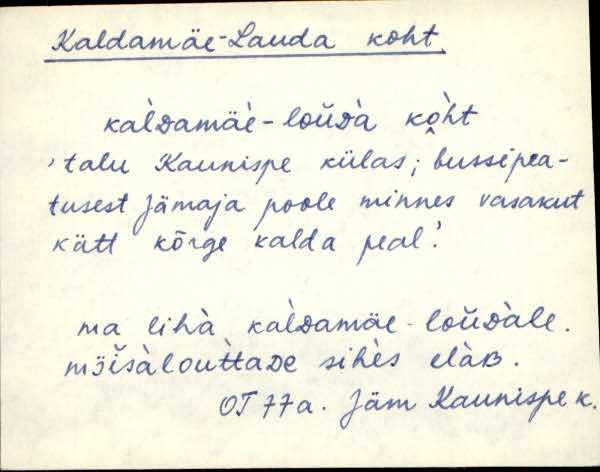 Kaldamäe-Lauda koht
kal̀ᴅamäè-loŭᴅ̀a kòh̭t
'talu Kaunispe külas; bussipea-
tusest Jämaja poole minnes vasakut
kätt kõrge kalda peal'.
ma lihà kal̀ᴅamäe-loŭᴅ̀ale.
mȫĭsàlout̀taᴅe sihès elàʙ.
OT 77a. Jäm Kaunispe k.